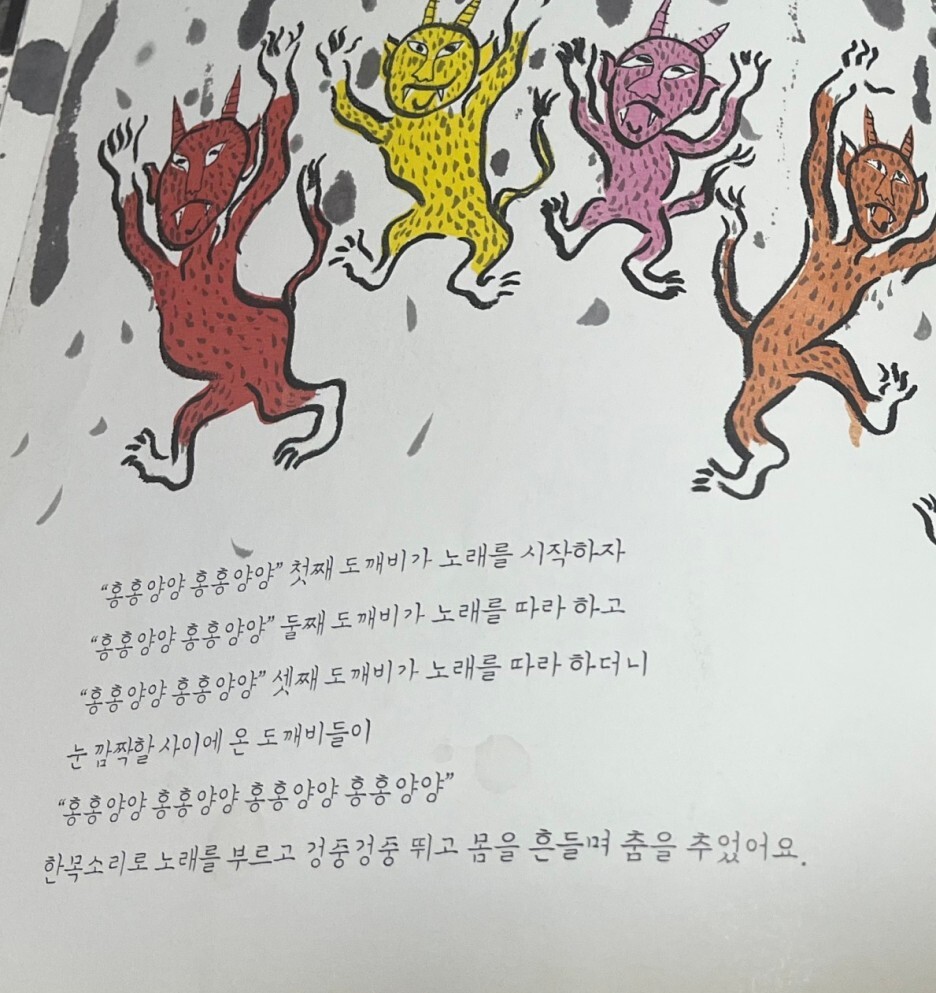 “홍홍양양 홍홍양양” 첫째 도깨비가 노래를 시작하자
“홍홍양양 홍홍양양” 둘째 도깨비가 노래를 따라 하고
“홍홍양양 홍홍양양” 셋째 도깨비가 노래를 따라 하더니
눈 깜짝할 사이에 온 도깨비들이
“홍홍양양 홍홍양양 홍홍양양 홍홍양양”
한목소리로 노래를 부르고 겅중겅중 뛰고 몸을 흔들며 춤을 추었어요.